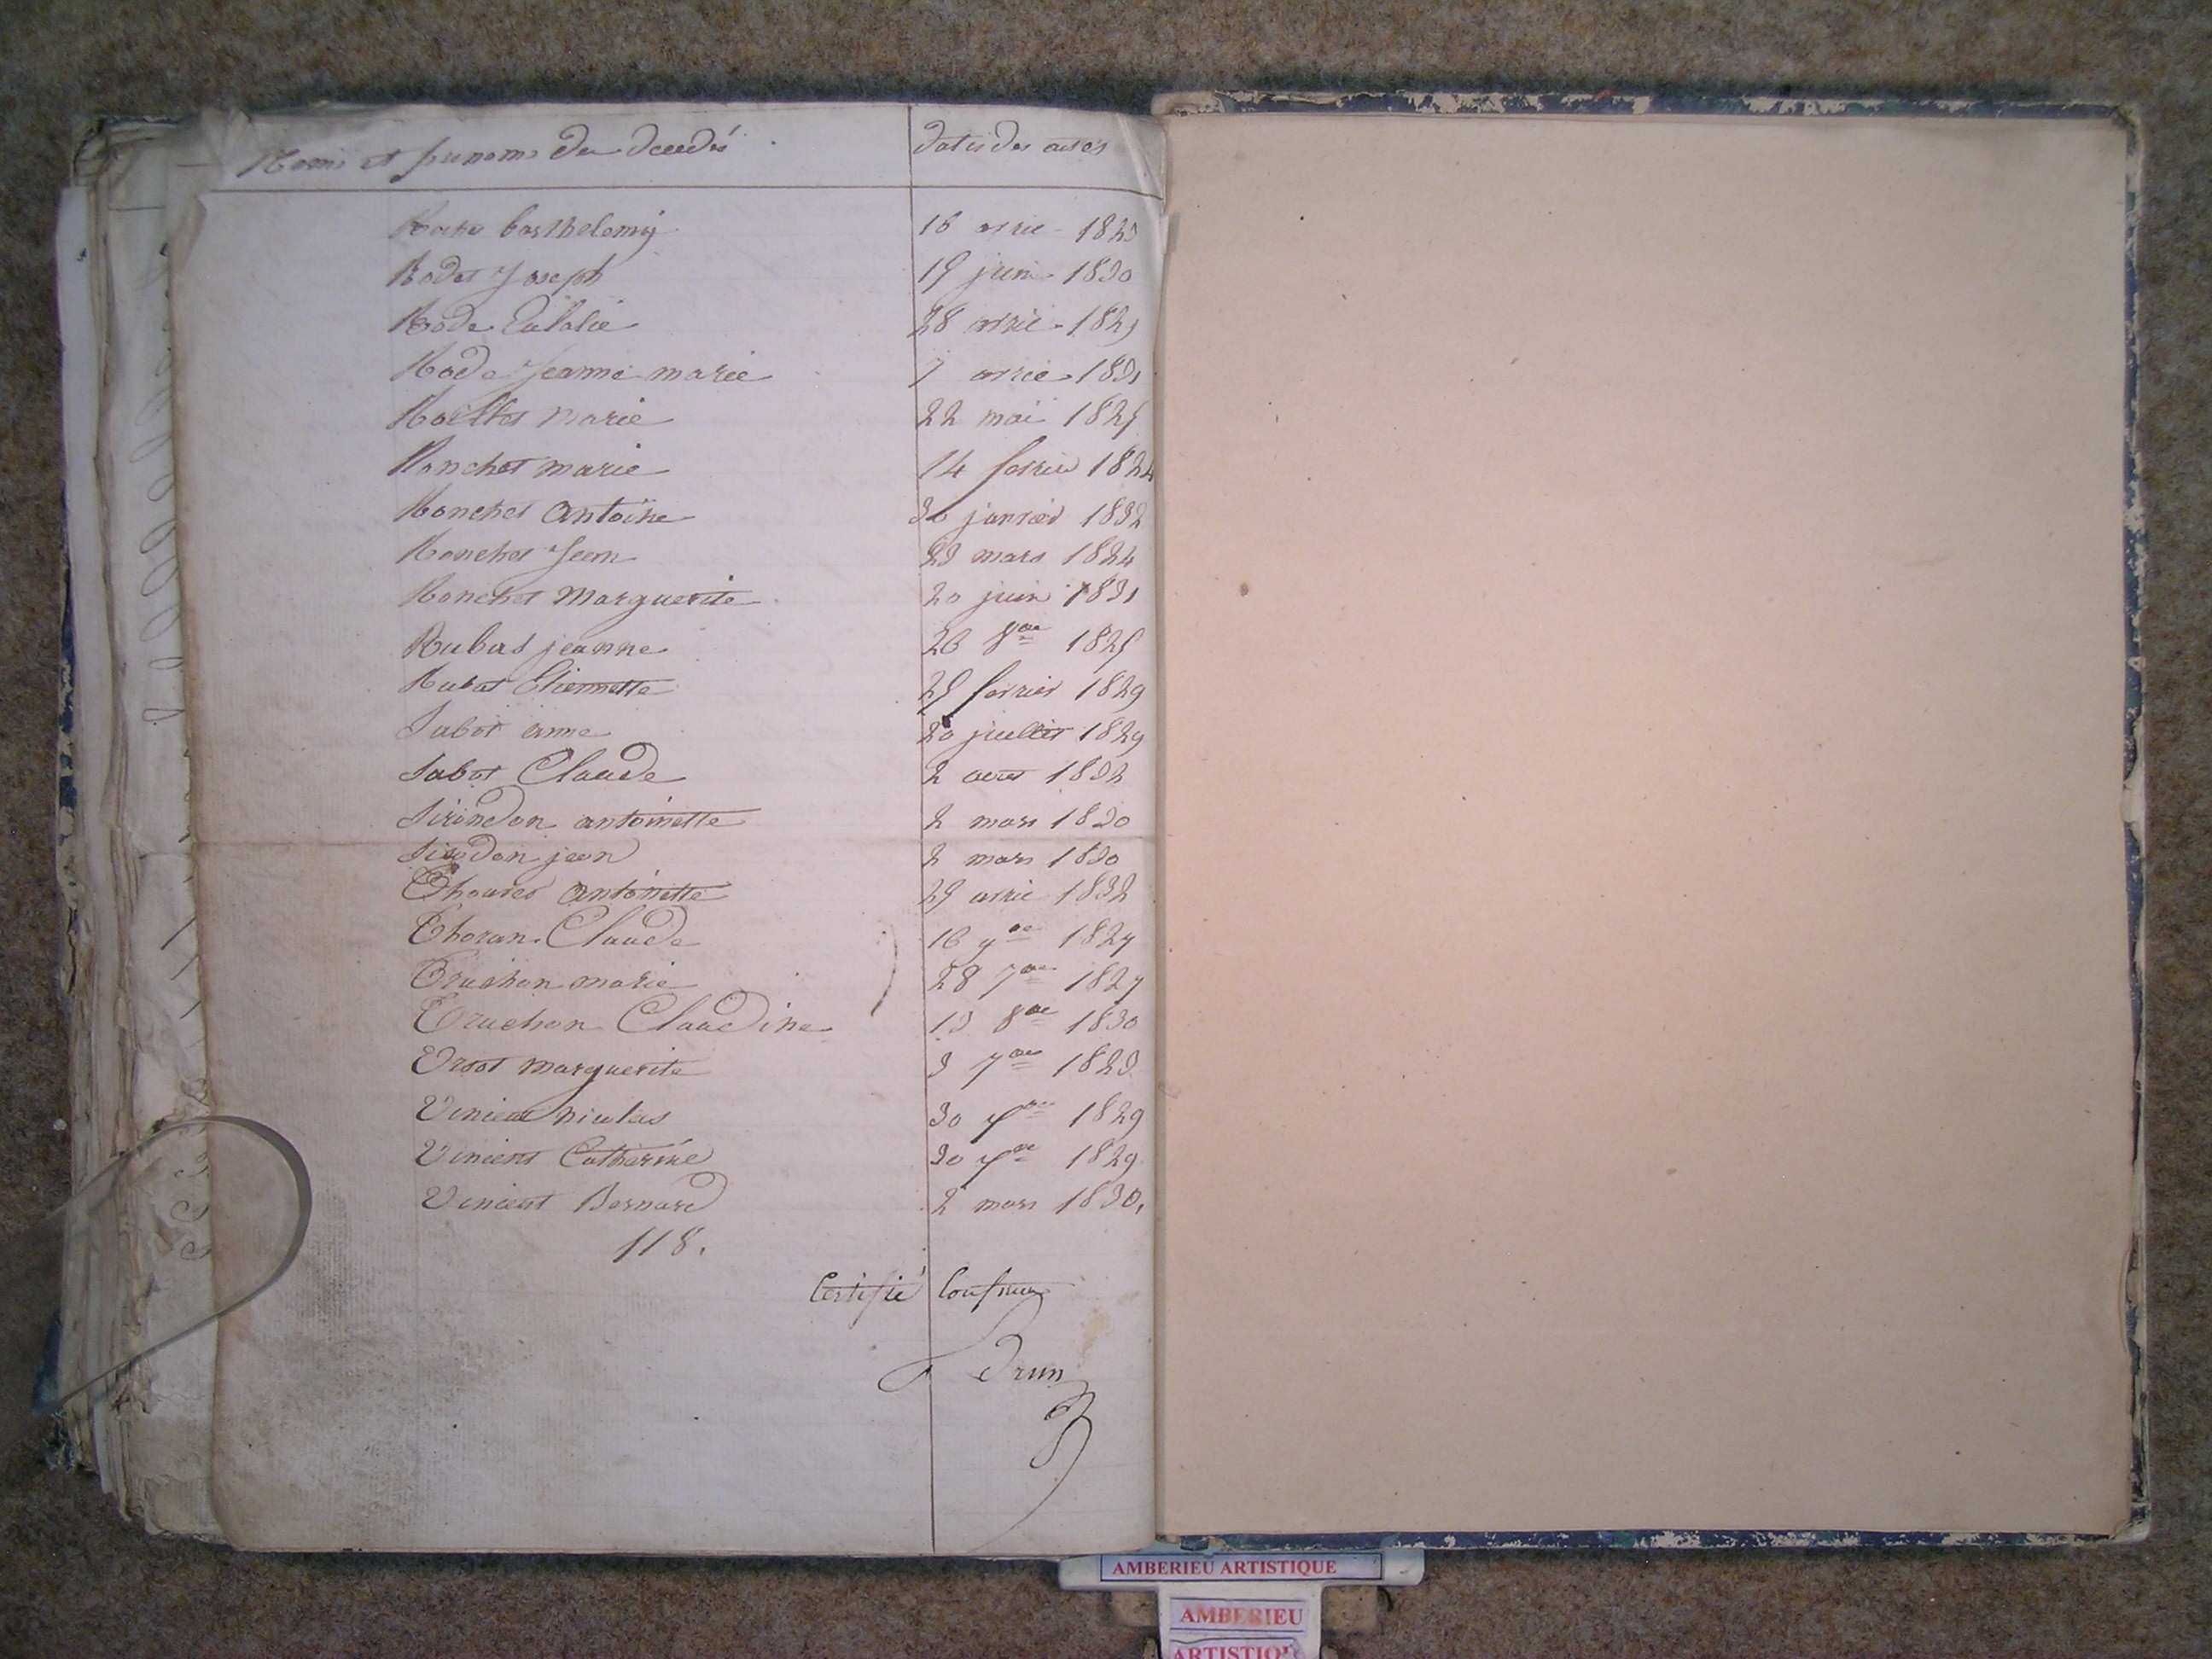 Noms et prenoms des decedés dates des actes
barthelemy 16 avril 1823
Rodet Joseph 19 juin 1830
Rode Eulalie 28 avril 1829
Rode Jeanne marie 7 avril 1831
marie 22 mai 1825
Ronchet marie 14 fevrier 1824
Ronchet antoine 30 janvier 1832
Ronchet Jean 23 mars 1824
Ronchet Marguerite 20 juin 1831
Rubat jeanne 26 8bre 1825
Rubat Etiennette 25 fevrier 1829
Sabot anne 20 juillet 1829
Sabot Claude 2 aout 1832
Sirondon antoinette 2 mars 1830
jean 2 mars 1830
antoinette 29 avril 1832
Claude 16 1827
Truchon marie 28 7bre 1827
Truchon Claudine 13 8bre 1830
marguerite 3 7bre 1823
Vincent nicolas 30 1829
Vincent Catherine 30 1829
Vincent Bernard 2 mars 1830.
118.
Certifié Conforme
Brun
AMBERIEU ARTISTIQUE
AMBERIEU